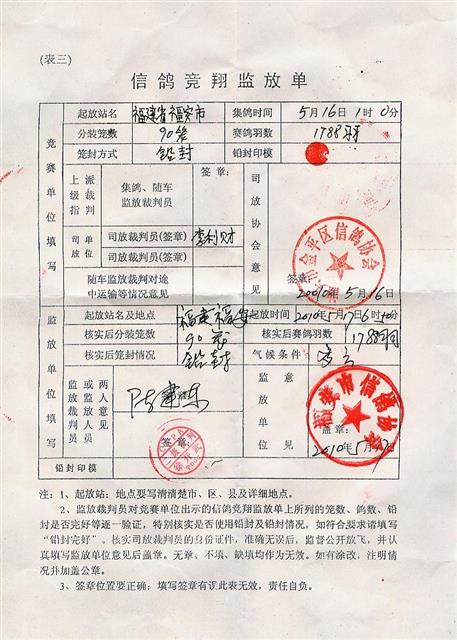 (表三)
信鸽竞翔监放单
竞赛单位填写
起放站名 福建省福安市 集鸽时间 5月16日1时0分
分装笼数 90笼 赛鸽羽数 1788羽
笼封方式 铅封 铅封印模
上级指派裁判 集鸽、随车监放裁判员 签章:
司放单位 司放裁判员(签章) 李利财
司放裁判员(签章)
随车监放裁判对途中运输等情况意见
司放协会意见
金平区信鸽协会
签章:
2010年5月16日
监放单位填写
起放站名及地点 福建福安 起放时间 2010年5月17日6时10分
核实后分装笼数 90笼 核实后赛鸽羽数 1788羽
核实后笼封情况 铅封 气候条件 多云
监放裁判员或两监放人意见
签章:
监放单位意见
福安市信鸽协会
盖章:
2010年5月17日
铅封印模
注:1、起放站:地点要写清清楚市、区、县及详细地点。
2、监放裁判员对竞赛单位出示的信鸽竞翔监放单上所列的笼数、鸽数、铅
封是否完好等逐一验证,特别核实是否使用铅封及铅封情况,如符合要求请填写
“铅封完好”。核实司放裁判员的身份证件,准确无误后,监督公开放飞,并认
真填写监放单位意见后盖章。无章、不填、缺填均作为无效。如有涂改,注明情
况并加盖公章。
3、签章位置要正确:填写签章有误此表无效,责任自负。